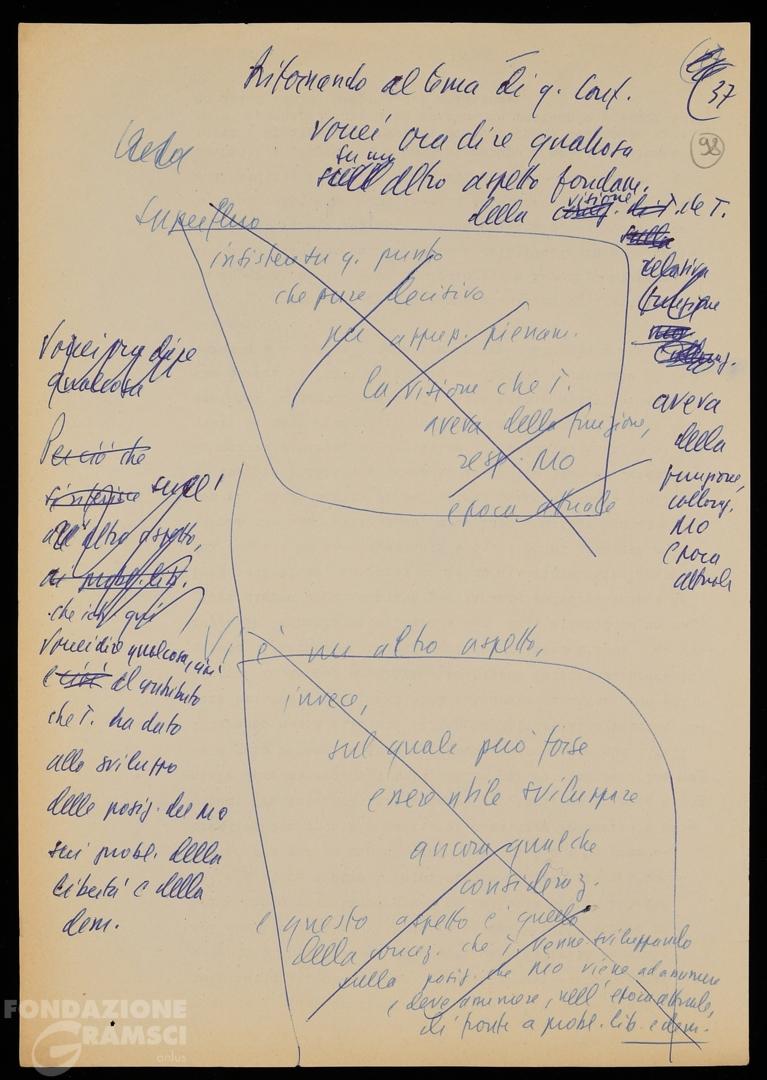 Ritornando al tema di q. Conf.
37
98
vorrei ora dire qualcosa
su un
altro aspetto fondam.
visione
della che T.
relativa
funzione
aveva
della
funzione,
MO
epoca
attuale
Superfluo
insistere su q. punto
che pure decisivo
per appr. pienam.
la visione che T.
aveva della funzione,
resp. MO
epoca attuale
Vorrei ora dire
qualcosa
Perciò che
sull'
all'altro aspetto,
probl. lib.
vorrei dire qualcosa, cioè
è cioè il contributo
che T. ha dato
allo sviluppo
delle posiz. del MO
sui probl. della
libertà e della
dem.
Vi è un altro aspetto,
invece,
sul quale può forse
essere utile sviluppare
ancora qualche
consideraz.
e questo aspetto è quello
della concez. che T. venne sviluppando
sulla posiz. che MO viene ad assumere
e deve assumere, nell'epoca attuale,
di fronte a probl. lib. e dem.
FONDAZIONE
GRAMSCI
onlus